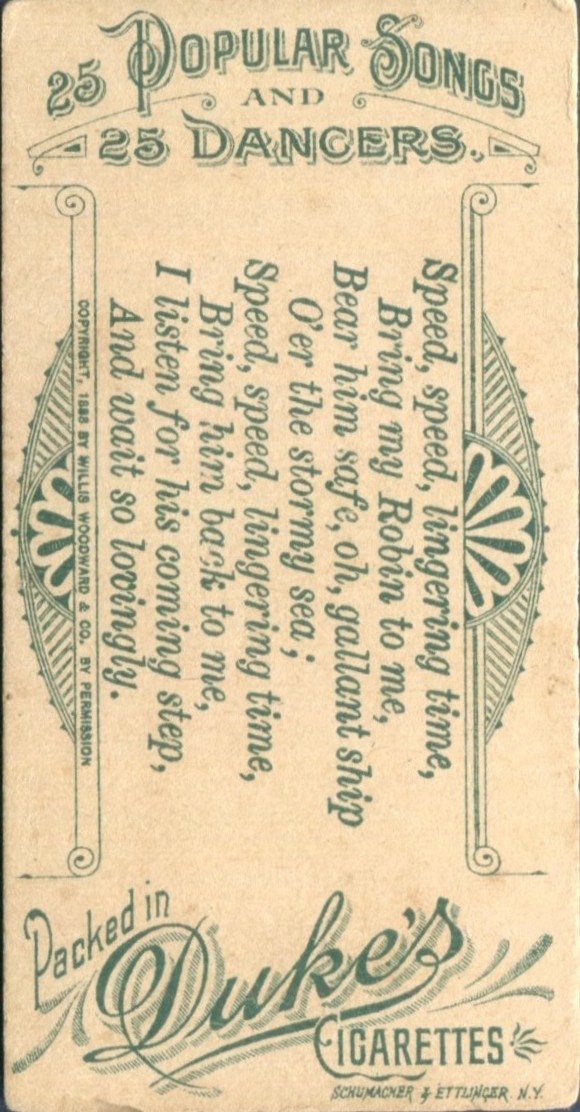 25 POPULAR SONGS
AND
25 DANCERS.
Speed, speed, lingering time,
Bring my Robin to me,
Bear him safe, oh, gallant ship
O'er the stormy sea;
Speed, speed, lingering time,
Bring him back to me,
I listen for his coming step,
And wait so lovingly.
COPYRIGHT, 1888 BY WILLIS WOODWARD & CO. BY PERMISSION
Packed in
Duke's
CIGARETTES
SCHUMACHER & ETTLINGER. N.Y.